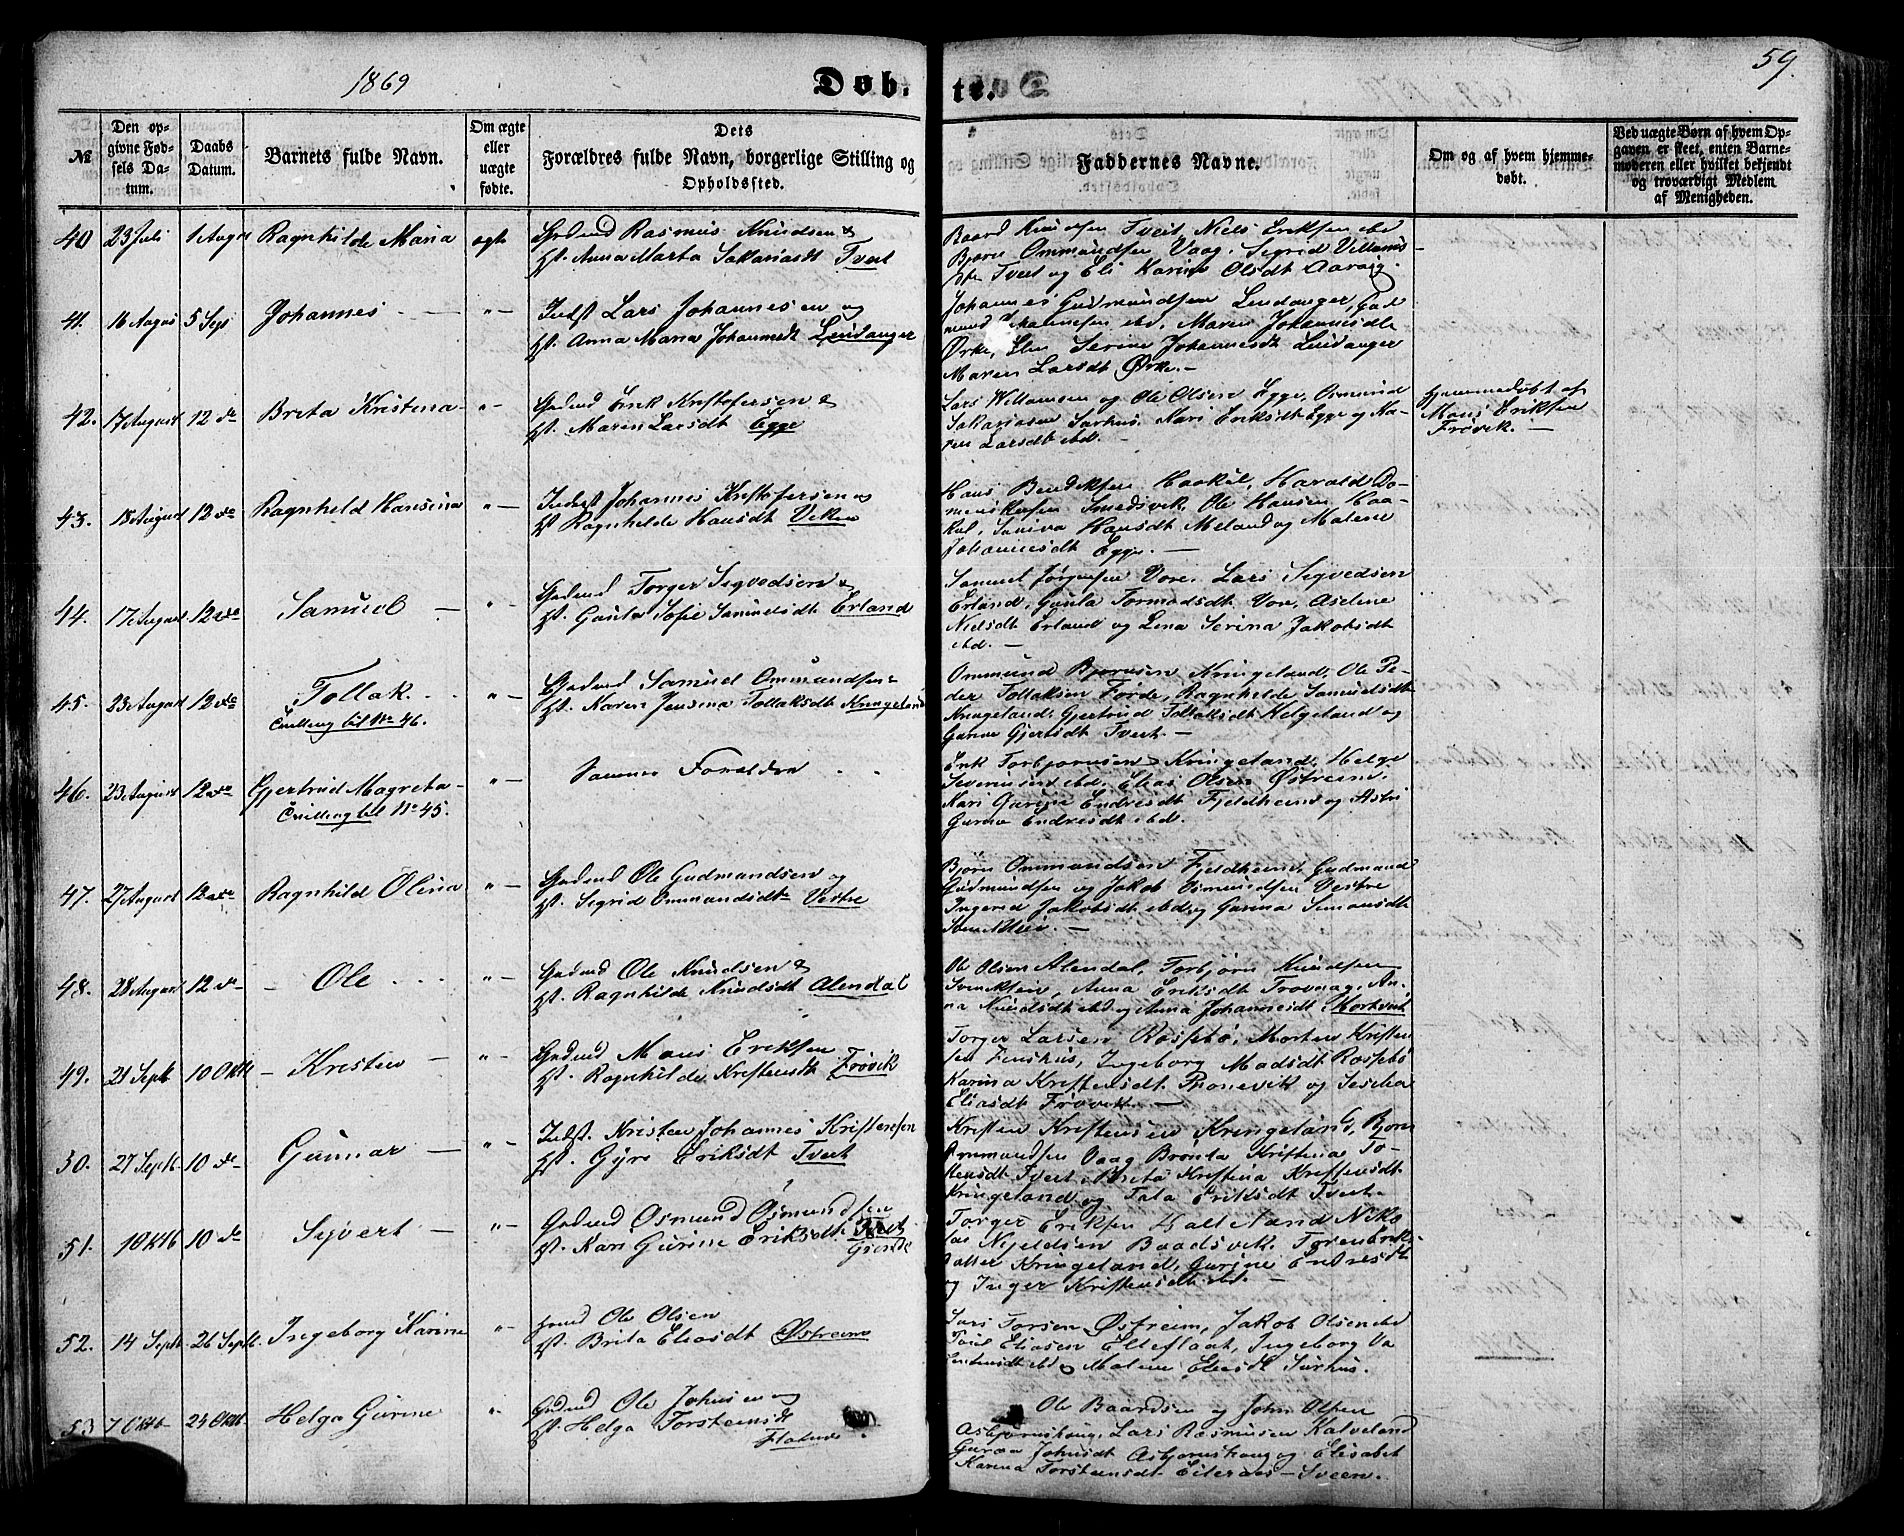 1869
Døb-
te.
59.
№
Den op-
givne Fød-
sels Da-
tum.
Daabs
Datum.
Barnets fulde Navn.
Om ægte
eller
uægte
fødte.
Dets
Forældres fulde Navn, borgerlige Stilling og
Opholdssted.
Faddernes Navne.
Om og af hvem hjemme-
døbt.
Ved uægte Børn af hvem Op-
gaven er skeet, enten Barne-
moderen eller hvilket bekjendt
og troværdigt Medlem
af Menigheden.
40 23 Juli 1 Augu Ragnhilde Maria ægte Gudmd Rasmus Knudsen &
Hst. Anna Marta Sakariasdt Tveit
Baard Knudsen Tveit, Niels Eriksen ibd
Bjørn Ommundsen Vaag, Sigrid Villums
Tveit og Eli Karine Olsdt Aarvig.
41. 16 Augus 5 Sep Johannes "— Indst Lars Johannesen og
Hst. Anna Maria Johannesdt Leirdanger
Johannes Gudmundsen Leirdanger, Gud
mund Johannesen ibd, Maren Johannesdt
Ørke, Elen Serine Johannesdt Leirdanger
Maren Larsdt Ørke. —
42. 17 August 12 do Brita Kristena "— Gudmd Erik Kristofersen &
Hst. Maren Larsdt Egge
Lars Willumsen og Ole Olsen Egge, Osmund
Sakariasen Sørhus, Kari Eriksdt Egge og Ka-
ren Larsdt ibd. —
Hjemmedøbt af
Mons Eriksen
Frøvik. —
43. 18 August 12 do Ragnhild Hansina "— Indst Johannes Kristofersen og
Hst Ragnhilde Hansdt Viken
Hans Bendiksen Haakul, Harald Do-
Smedsvik, Ole Hansen Haa-
kul, Siniva Hansdt Meland og Malene
Johannesdt Egge. —
44. 17 August 12 do Samuel — "— Gudmd Torger Sigvodsen &
Hst. Gunla Sofie Samuelsdt Erland
Samuel Jørgensen Vore, Lars Sigvedsen
Erland, Gunla Tormodsdt Vore, Aselene
Nielsdt Erland og Lena Serina Jakobsdt
ibd. —
45. 23 August 12 do Tollak "— Gudmd Samuel Ommundsen
Tvilling til No 46. Hst. Karen Jensina Tollaksdt Kringeland
Ommund Bjørnsen Kringeland, Ole Pe-
der Tollaksen Førde, Ragnhilde Samuelsdt
Kringeland, Gjertrud Tollaksdt Helgeland og
Gurine Gjertsdt Tveit. —
46. 23 August 12 do Gjertrud Magreta "— Samme Forældre
Tvilling til No 45.
Erik Torbjørnsen Kringeland, Helge
Severinsen ibd, Elias Olsen Østreim,
Kari Gurine Endresdt Fjeldheim og Astri
Gurine Endresdt ibd.
47. 27 August 12 do Ragnhilde Olina "— Gudmd Ole Gudmundsen og
Hst. Sigrid Ommundsdt Vestre
Bjørn Ommundsen Fjeldheim, Gudmund
Gudmundsen og Jakob Osmundsen Vestre
Ingered Jakobsdt ibd, og Gurina Simonsdt

48. 28 August 12 do — Ole "— Gudmd Ole Knudsen &
Hst. Ragnhilde Knudsdt Alendal
Ole Olsen Alendal, Torbjørn Knudsen
Anna Eriksdt Trovaag, An-
na Knudsdt ibd og Anna Johannesdt Mortveit
49. 21 Septb 10 Oktb — Kristen — "— Gudmd Mons Eriksen
Hst. Ragnhilde Kristensdt Frøvik
Torger Larsen Rossebø, Morten Kristen
sen Ingeborg Madsdt Rossebø
Karina Kristensdt og
Eliasdt Frøvik. —
50. 27 Septb 10 do Gunnar — "— Indst. Kristen Johannes Kristensen
Hst. Gyri Eriksdt Tveit
Kristen Kristensen Kringeland, Bjørn
Ommundsen Vaag, Bronla Kristina To-
Tveit, Brita Kristina Kristensdt
Kringeland og Tala Eriksdt Tveit.
51. 1 Oktb 10 do Syvert — "— Gudmd Osmund Osmundsen
Hst. Kari Gurine Eriksdt Tveit

Torger Eriksen Niko
las Njeldsen Baadsvik, Toren Erik-
datter Kringeland, Gurine Endresdt
og Inger Kristensdt ibd. —
52. 14 Septb 26 Septb. Ingeborg Karine "— Gudmd Ole Olsen
Hst. Brita Eliasdt Østreim
Lars Torsen Østreim, Jakob Olsen ibd
Eliasen Elleflaat, Ingeborg Va
ibd og Malene Eliasdt Sørhus.
53 7 Oktb 24 Oktb Helga Gurine " Gudmd Ole Johnsen og
Hst. Helga Torsteinsdt

Ole Baardsen og John Olsen
Asbjørnshaug, Lars Rasmusen Kalveland
Guroa Johnsdt Asbjørnshaug og Elisabet
Karina Torsteinsdt Eileraas — Sveen.